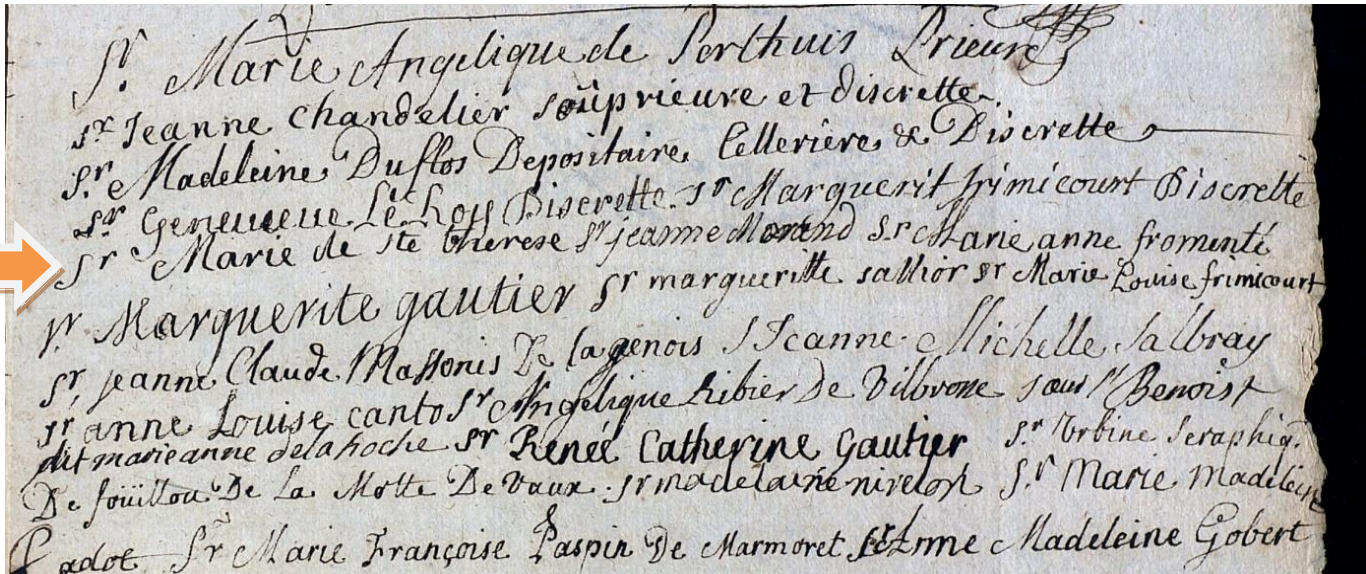 Sr Marie Angelique de Perthuis Prieure
sr Jeanne Chandelier soûprieure et discrette
Sr Madeleine Duflos Depositaire Celleriere & Discrette
sr Genevieve Le Roy Discrette sr Marguerit frimicourt Discrette
sr Marie de ste therese sr jeanne Morand sr Marie anne fromenté
sr Marguerite gautier sr margueritte sallior sr Marie Louise frimicourt
sr jeanne Claude Massonis De lagenois S Jeanne Michelle Salbray
sr anne Louise canto sr Angelique Ribier De Vilbrosse sœur st Benoist
dit marie anne delaRoche sr Renée Catherine Gautier sr Urbine Seraphiq.
De fouillou De La Motte De Vaux sr madelaine nivelon Sr Marie Madeleine
Cadot Sr Marie Françoise Paspin De Marmoret sr Anne Madeleine Gobert